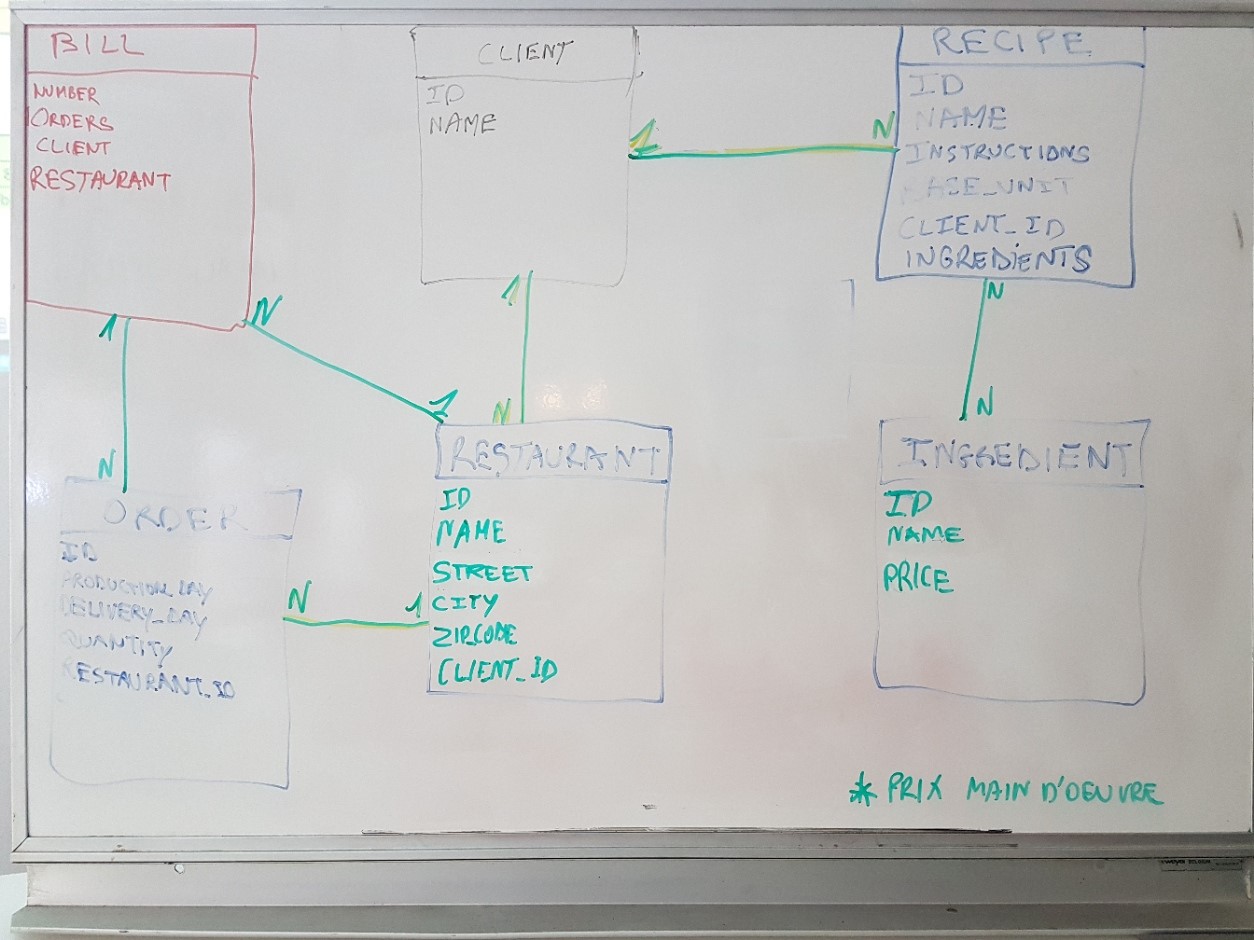 BILL
NUMBER
ORDERS
CLIENT
RESTAURANT
CLIENT
ID
NAME
RECIPE
ID
NAME
INSTRUCTIONS
BASE_UNIT
CLIENT_ID
INGREDIENTS
1
N
1
N
1
N
1
N
N
N
ORDER
ID
PRODUCTION_DAY
DELIVERY_DAY
QUANTITY
RESTAURANT_ID
N
1
RESTAURANT
ID
NAME
STREET
CITY
ZIPCODE
CLIENT_ID
INGREDIENT
ID
NAME
PRICE
* PRIX MAIN D'OEUVRE